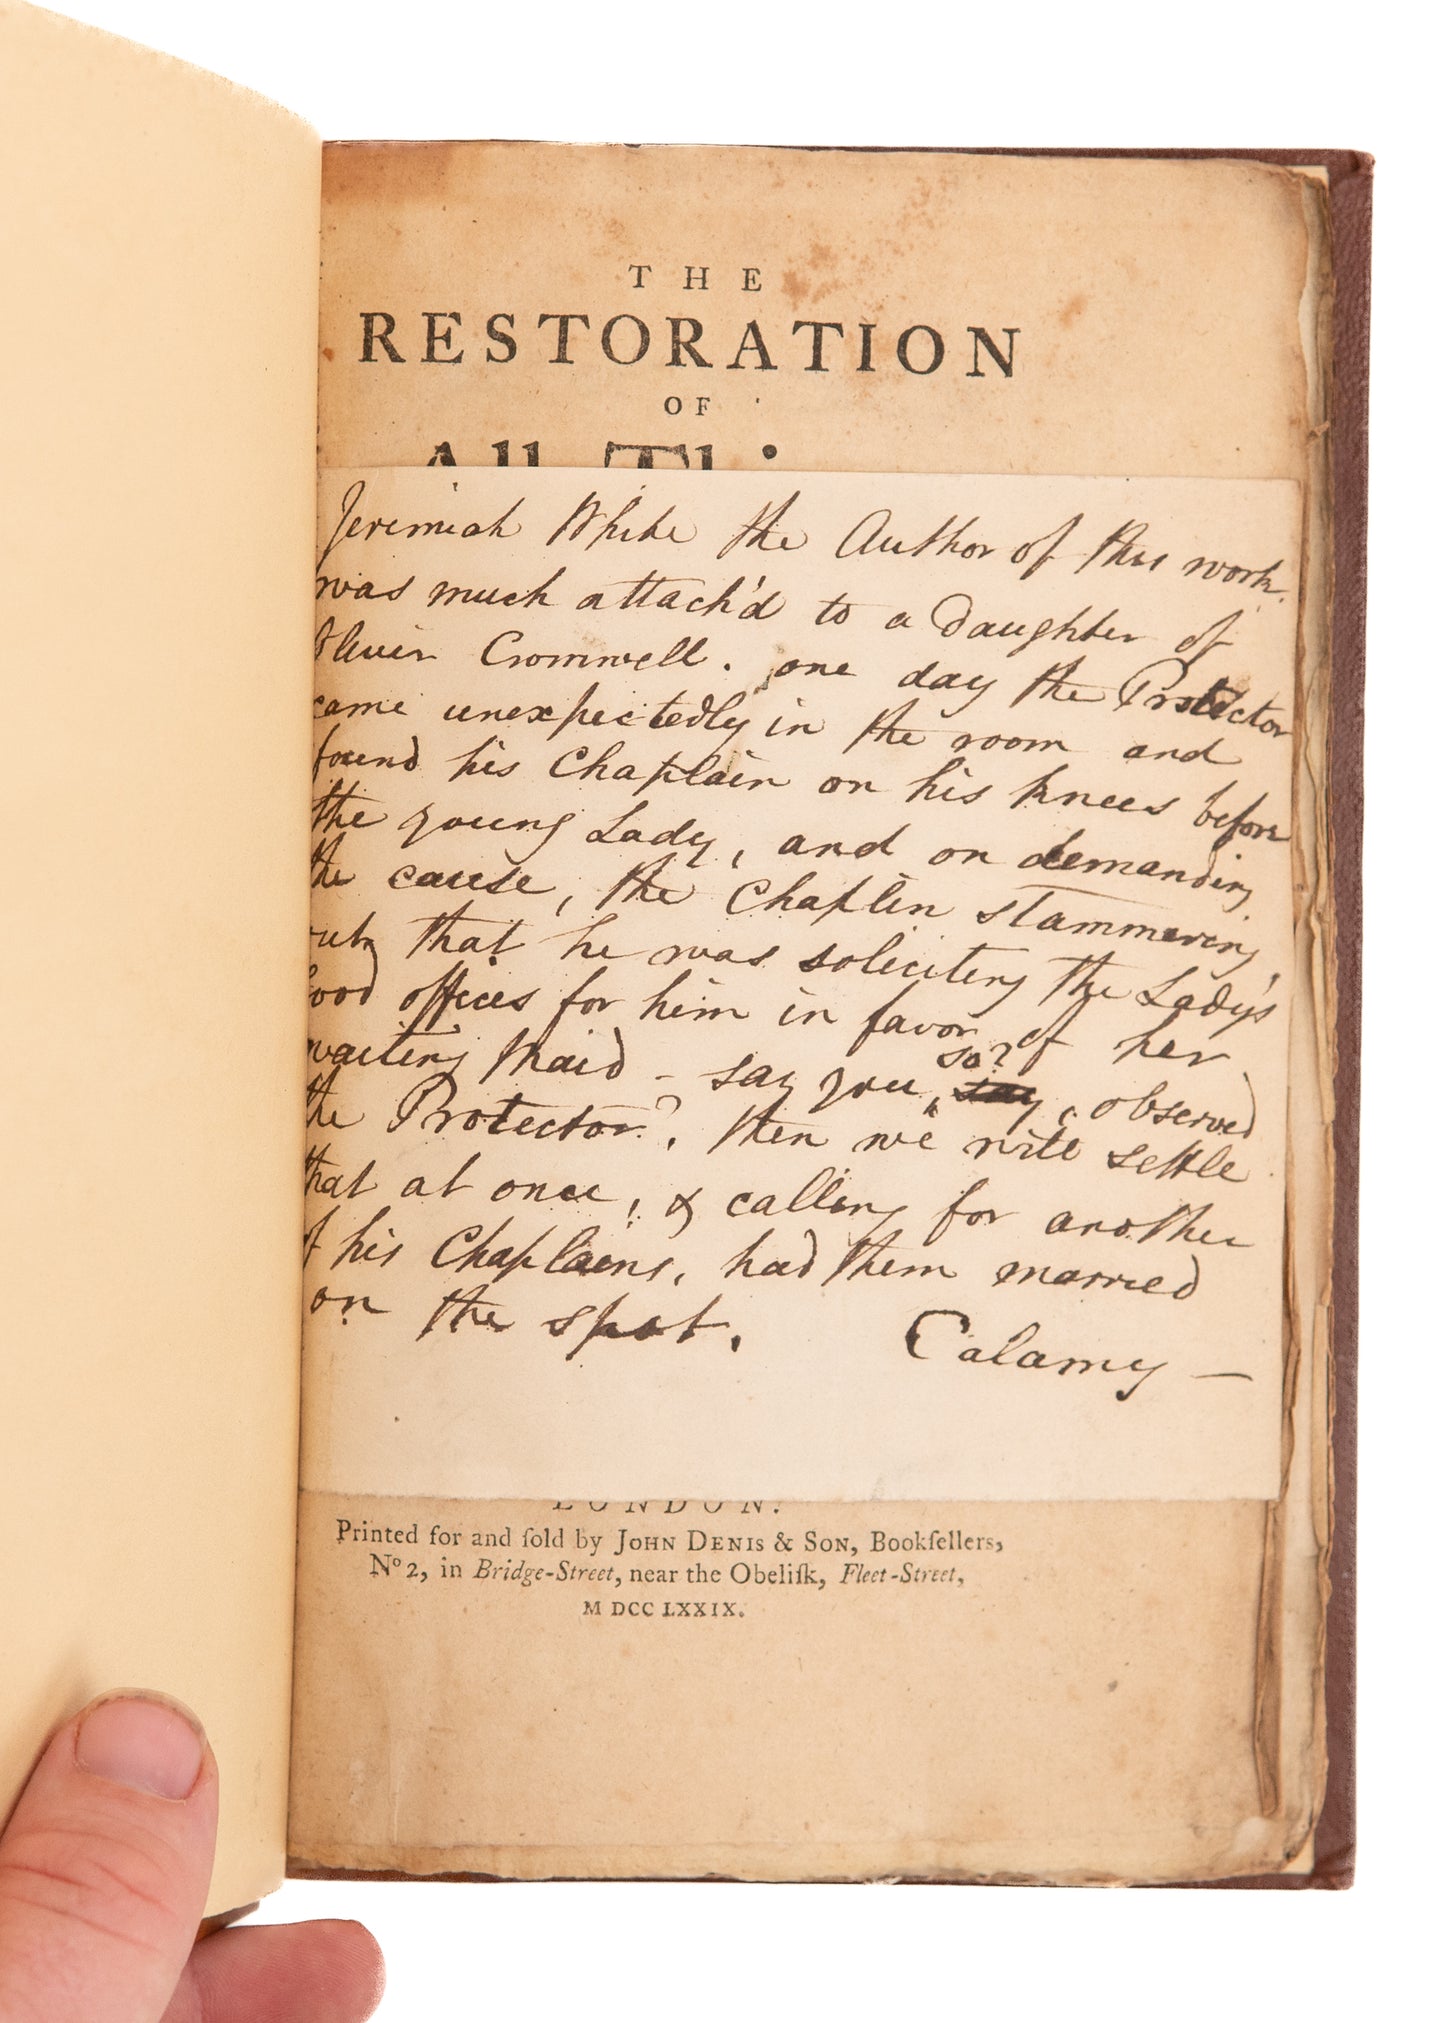 THE
RESTORATION
OF
All Thi
Jeremiah White the Author of this work.
was much attach'd to a Daughter of
Oliver Cromwell. one day the Protector
came unexpectedly in the room and
found his Chaplain on his knees before
the young Lady, and on demanding
the cause, the Chaplin stammering
out, that he was soliciting the Lady's
Good offices for him in favor of her
waiting Maid – say you so? say, observed
the Protector?, then we will settle
that at once, & calling for another
of his Chaplains, had them married
on the spot. Calamy —
LONDON:
Printed for and ſold by JOHN DENIS & SON, Bookſellers,
No 2, in Bridge-Street, near the Obeliſk, Fleet-Street,
M DCC LXXIX.